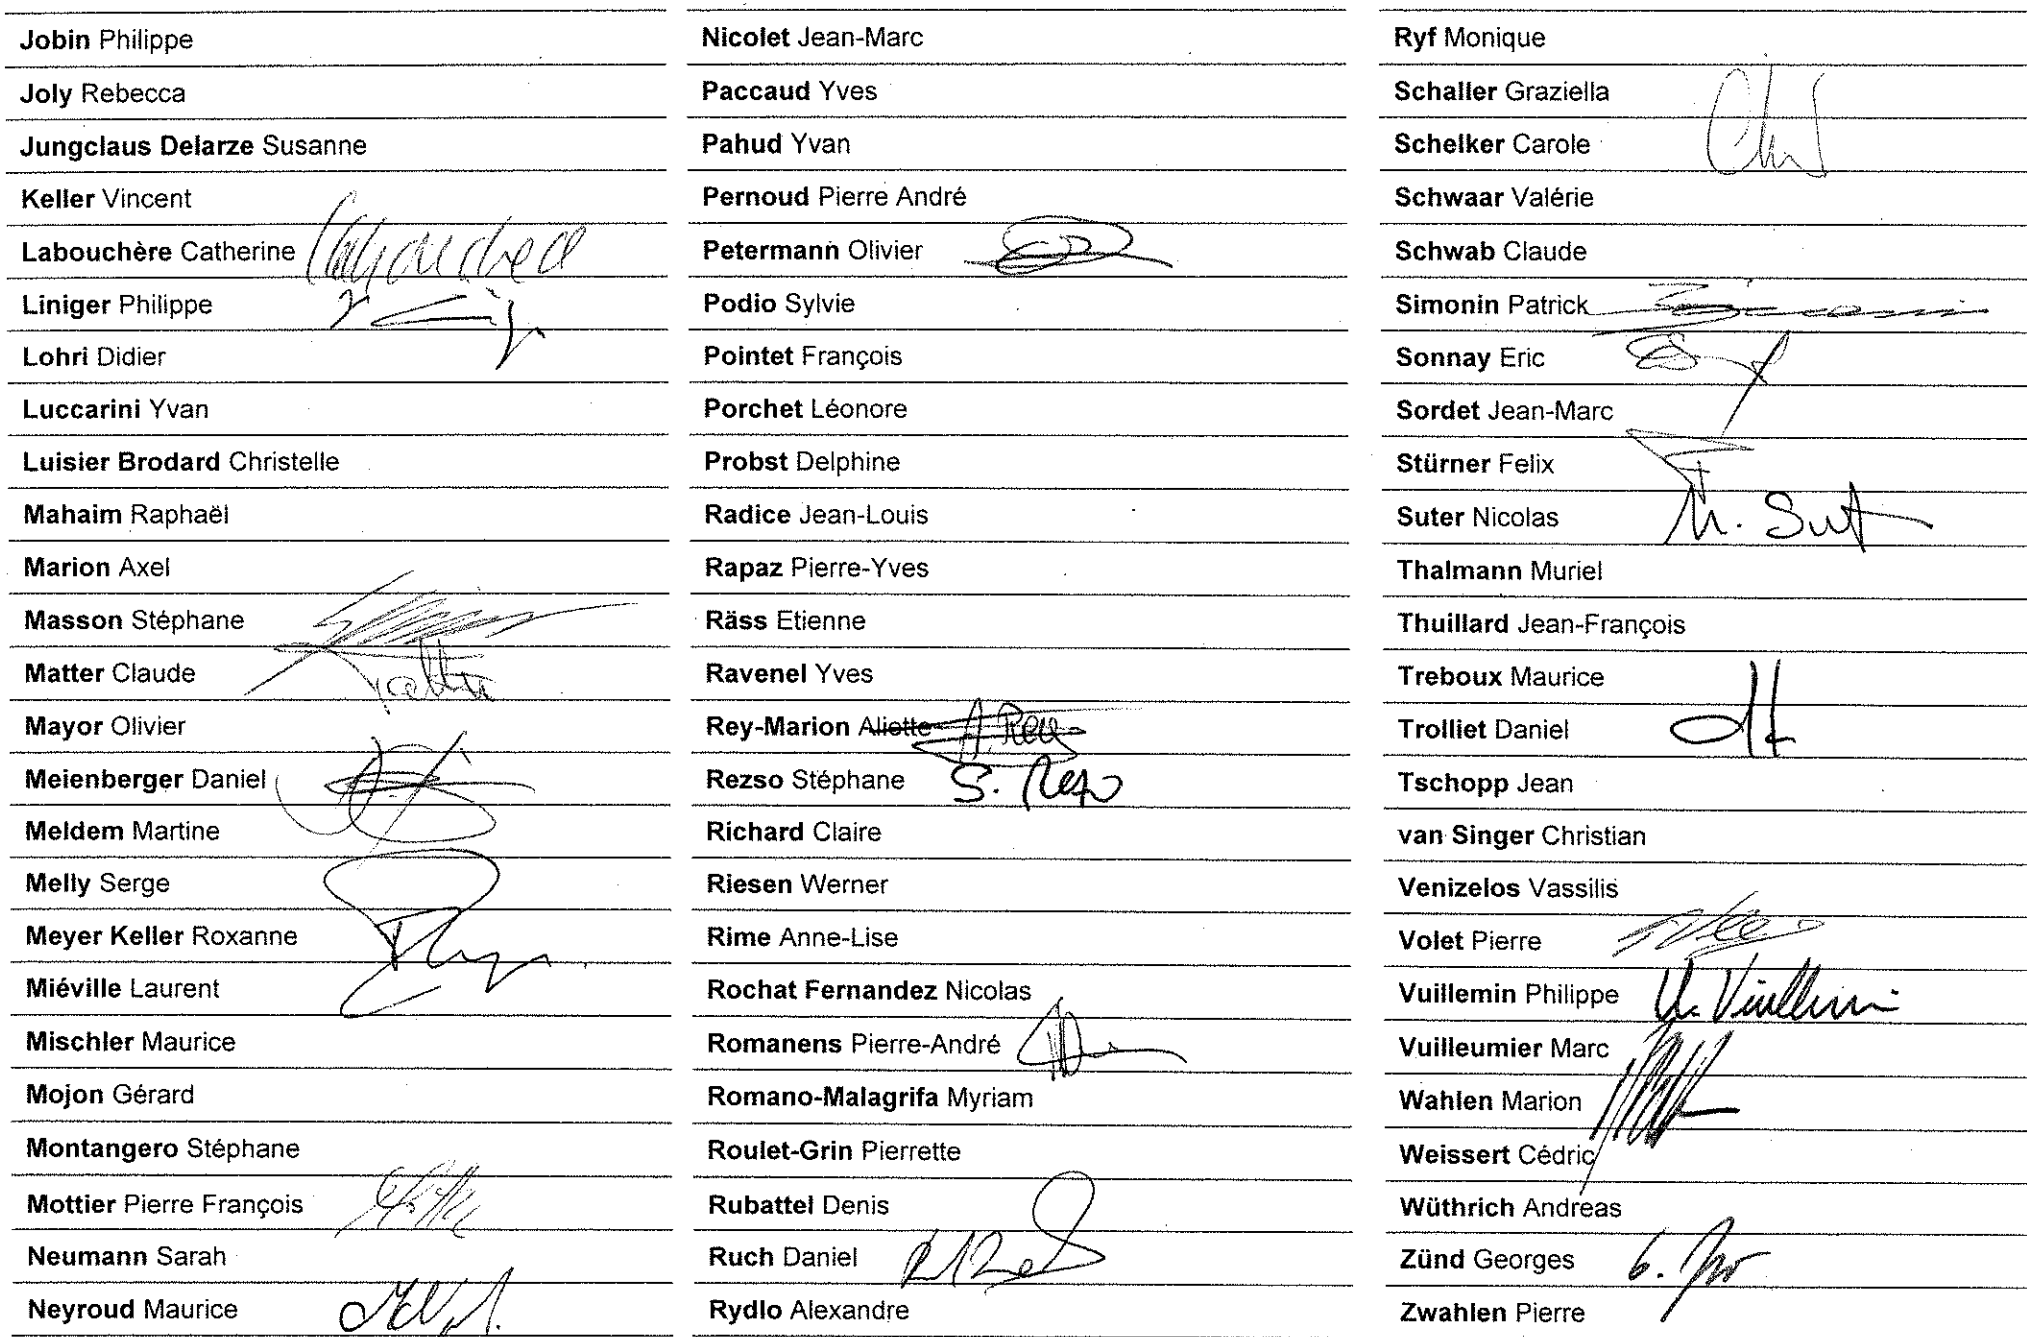 Jobin Philippe
Joly Rebecca
Jungclaus Delarze Susanne
Keller Vincent
Labouchère Catherine
Liniger Philippe
Lohri Didier
Luccarini Yvan
Luisier Brodard Christelle
Mahaim Raphaël
Marion Axel
Masson Stéphane
Matter Claude
Mayor Olivier
Meienberger Daniel
Meldem Martine
Melly Serge
Meyer Keller Roxanne
Miéville Laurent
Mischler Maurice
Mojon Gérard
Montangero Stéphane
Mottier Pierre François
Neumann Sarah
Neyroud Maurice
Nicolet Jean-Marc
Paccaud Yves
Pahud Yvan
Pernoud Pierre André
Petermann Olivier
Podio Sylvie
Pointet François
Porchet Léonore
Probst Delphine
Radice Jean-Louis
Rapaz Pierre-Yves
Räss Etienne
Ravenel Yves
Rey-Marion Aliette A. Rey
Rezso Stéphane S. Rezso
Richard Claire
Riesen Werner
Rime Anne-Lise
Rochat Fernandez Nicolas
Romanens Pierre-André
Romano-Malagrifa Myriam
Roulet-Grin Pierrette
Rubattel Denis
Ruch Daniel
Rydlo Alexandre
Ryf Monique
Schaller Graziella
Schelker Carole
Schwaar Valérie
Schwab Claude
Simonin Patrick
Sonnay Eric
Sordet Jean-Marc
Stürner Felix
Suter Nicolas N. Sut
Thalmann Muriel
Thuillard Jean-François
Treboux Maurice
Trolliet Daniel
Tschopp Jean
van Singer Christian
Venizelos Vassilis
Volet Pierre
Vuillemin Philippe Vuillemin
Vuilleumier Marc
Wahlen Marion
Weissert Cédric
Wüthrich Andreas
Zünd Georges
Zwahlen Pierre